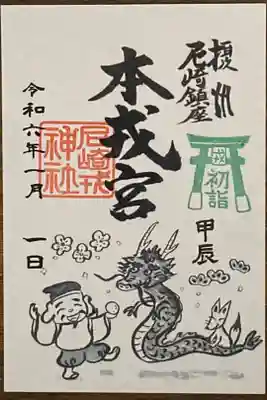 摂州
尼崎鎮座
戎
初詣
甲辰
本戎宮
尼崎戎
神社
令和六年一月
一日